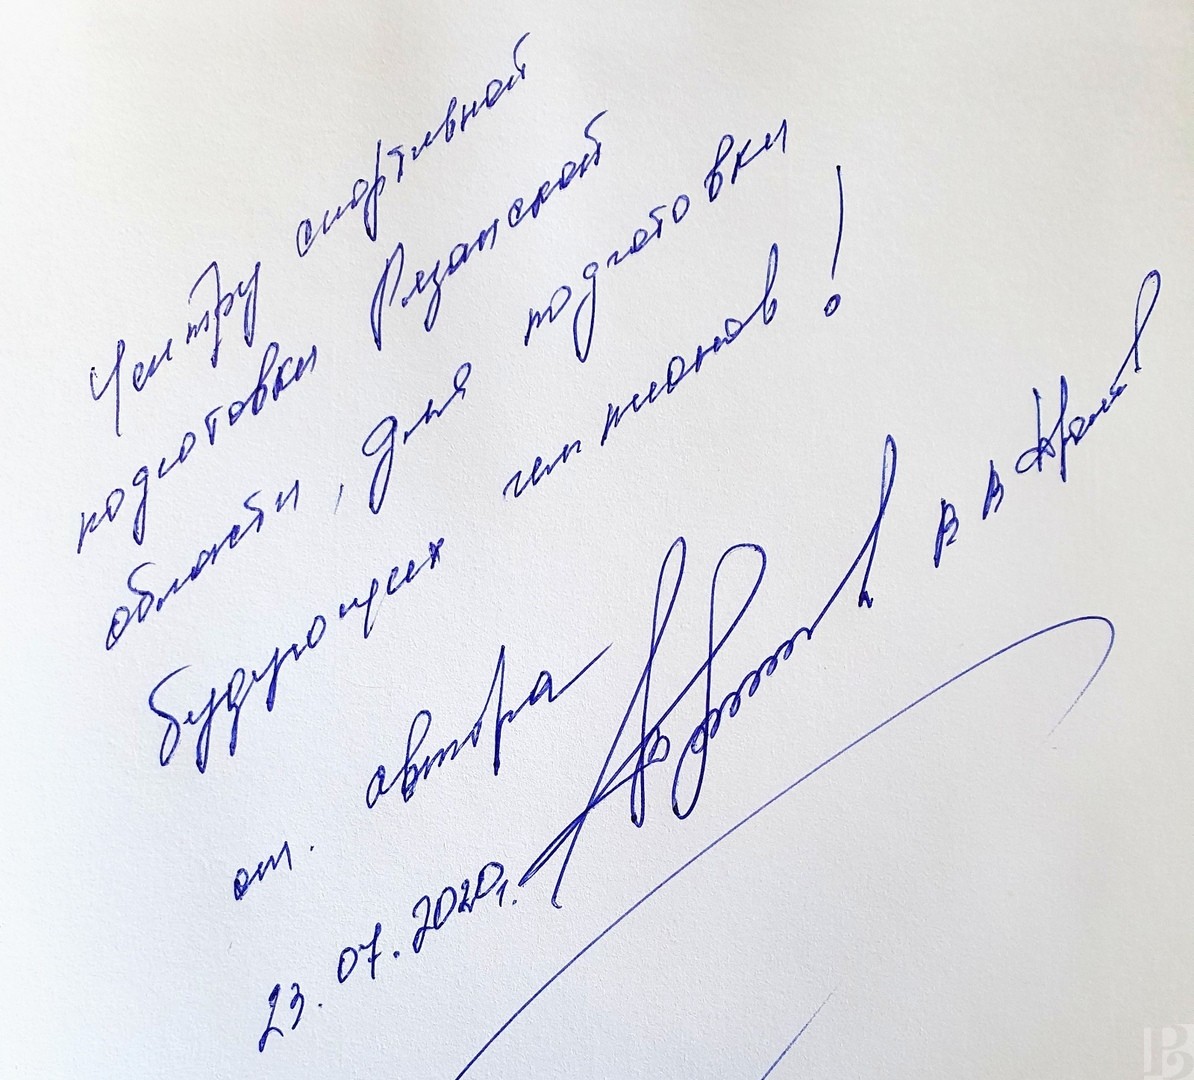 Центру спортивной
подготовки Рязанской
области, для подготовки
будующих чемпионов!
от. автора
В В
23.07.2020г.